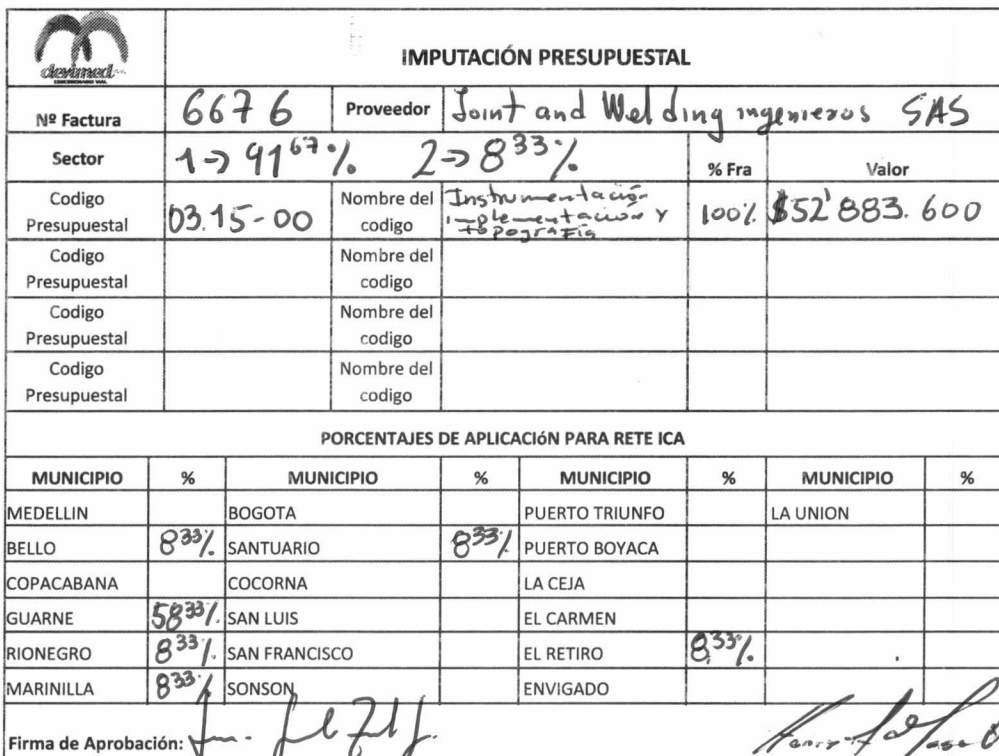 devimed
CONCESIONARIO VIAL
IMPUTACIÓN PRESUPUESTAL
Nº Factura 6676 Proveedor Joint and Welding ingenieros SAS
Sector 1→91⁶⁷% 2→8³³% % Fra Valor
Codigo Presupuestal 03.15-00 Nombre del codigo Instrumentación implementacion y topografía 100% $52'883.600
Codigo Presupuestal Nombre del codigo
Codigo Presupuestal Nombre del codigo
Codigo Presupuestal Nombre del codigo
PORCENTAJES DE APLICACIóN PARA RETE ICA
MUNICIPIO % MUNICIPIO % MUNICIPIO % MUNICIPIO %
MEDELLIN BOGOTA PUERTO TRIUNFO LA UNION
BELLO 8³³% SANTUARIO 8³³% PUERTO BOYACA
COPACABANA COCORNA LA CEJA
GUARNE 58³³% SAN LUIS EL CARMEN
RIONEGRO 8³³% SAN FRANCISCO EL RETIRO 8³³%
MARINILLA 8³³% SONSON ENVIGADO
Firma de Aprobación: